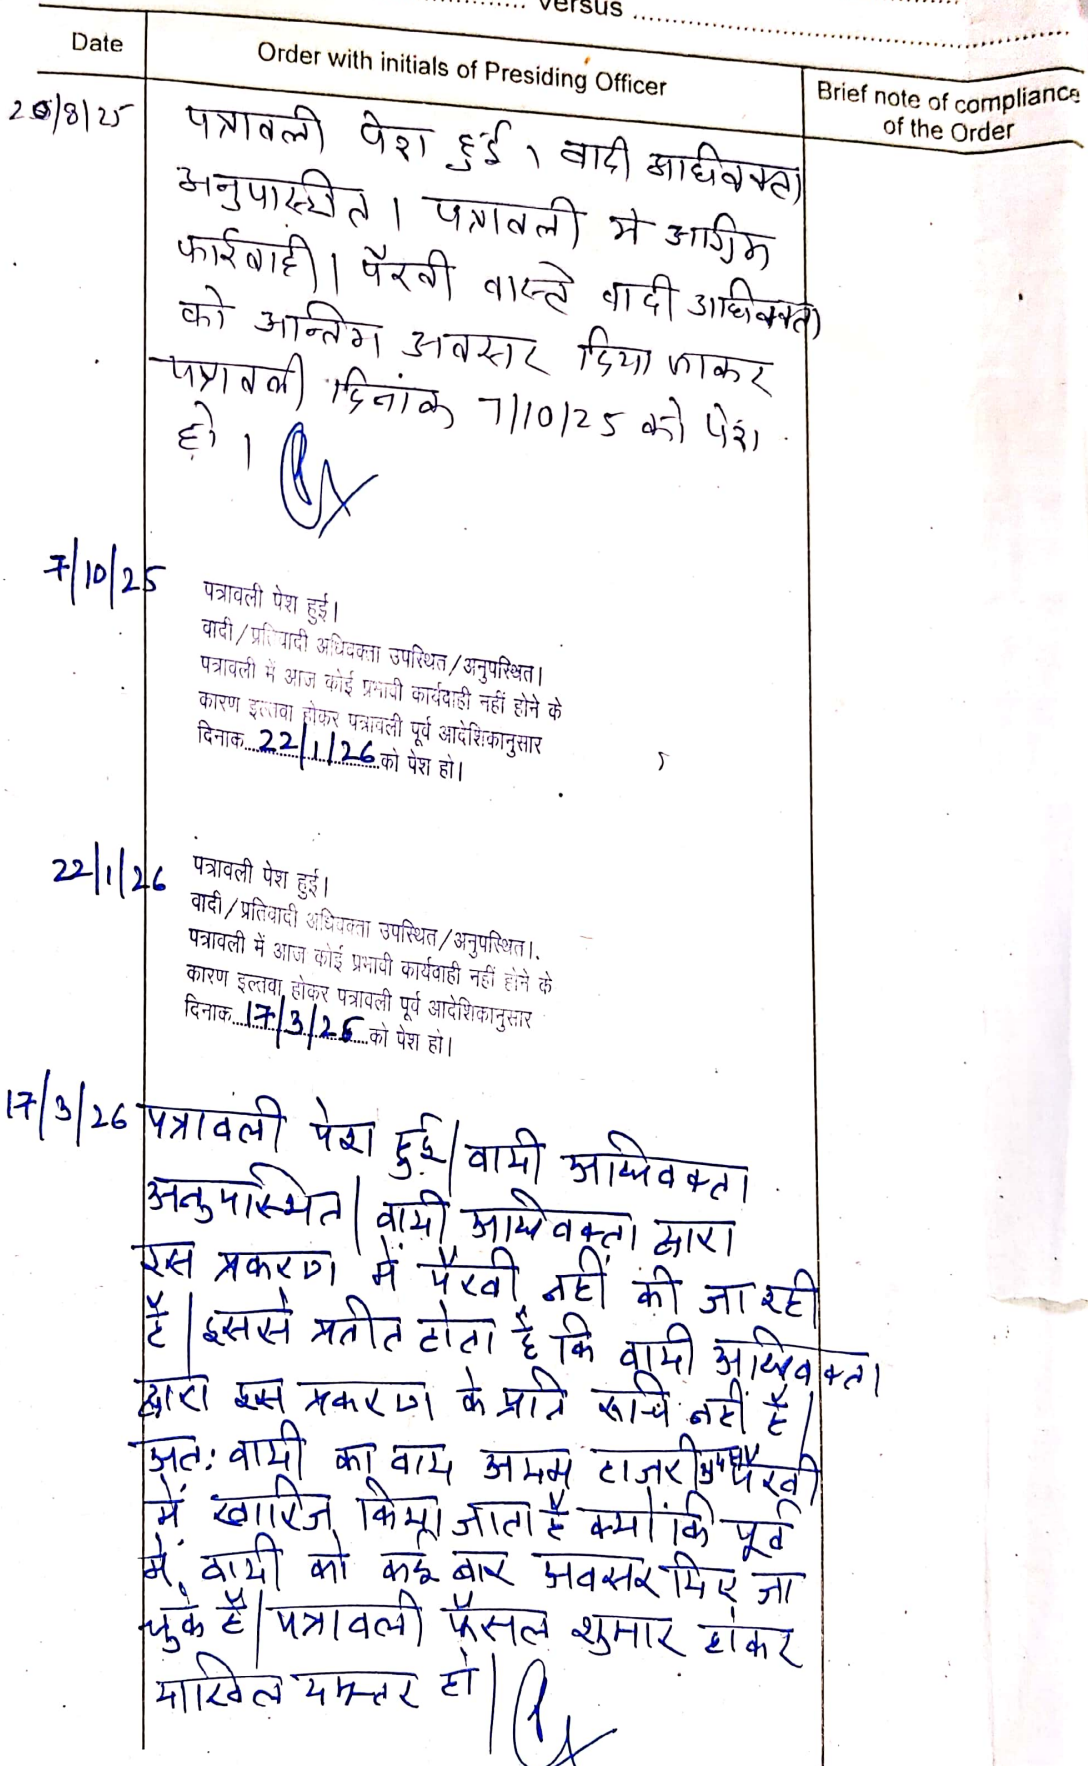 versus
Date
Order with initials of Presiding Officer
Brief note of compliance
of the Order
20/8/25
पत्रावली पेश हुई। वादी अधिवक्ता
अनुपस्थित। पत्रावली मे अग्रिम
कार्रवाही। पैरवी वास्ते वादी अधिवक्ता
को अन्तिम अवसर दिया जाकर
पत्रावली दिनांक 7/10/25 को पेश
हो।
7/10/25
पत्रावली पेश हुई।
वादी/प्रतिवादी अधिवक्ता उपस्थित/अनुपस्थित।
पत्रावली में आज कोई प्रभावी कार्यवाही नहीं होने के
कारण इल्तवा होकर पत्रावली पूर्व आदेशिकानुसार
दिनाक 22/1/26 को पेश हो।
22/1/26
पत्रावली पेश हुई।
वादी/प्रतिवादी अधिवक्ता उपस्थित/अनुपस्थित।
पत्रावली में आज कोई प्रभावी कार्यवाही नहीं होने के
कारण इल्तवा होकर पत्रावली पूर्व आदेशिकानुसार
दिनाक 17/3/26 को पेश हो।
17/3/26
पत्रावली पेश हुई। वादी अधिवक्ता
अनुपस्थित। वादी अधिवक्ता द्वारा
इस प्रकरण में पैरवी नहीं की जा रही
है। इससे प्रतीत होता है कि वादी अधिवक्ता
द्वारा इस प्रकरण के प्रति रूचि नहीं है।
अतः वादी का वाद अदम हाजरी पैरवी
में खारिज किया जाता है क्योंकि पूर्व
में वादी को कई बार अवसर दिए जा
चुके है। पत्रावली फैसल शुमार होकर
दाखिल दफ्तर हो।